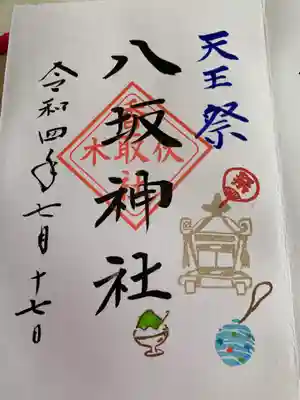 天王祭
祭
八坂神社
伏
香取
木
令和四年七月十七日